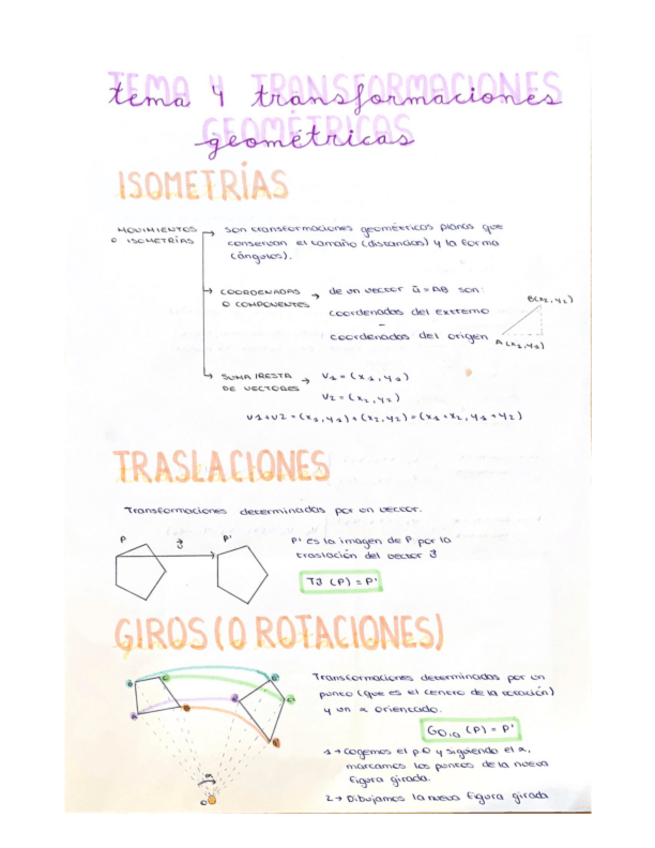 TEMA 4 TRANSFORMACIONES
tema 4 transformaciones
GEOMÉTRICAS
geométricas
ISOMETRÍAS
MOVIMIENTOS
O ISOMETRÍAS
son transformaciones geométricas planas que
conservan el tamaño (distancias) y la forma
(ángulos).
COORDENADAS
O COMPONENTES
de un vector ū = AB son:
coordenadas del extremo
-
coordenadas del origen
B(x₂, y₂)
A(x₁, y₁)
SUMA/RESTA
DE VECTORES
V₁ = (x₁, y₁)
V₂ = (x₂, y₂)
V1+V2 = (x₁, y₁) + (x₂, y₂) = (x₁ + x₂, y₁ + y₂)
TRASLACIONES
Transformaciones determinadas por un vector.
P
P'
P' es la imagen de P por la
traslación del vector
(P) = P'
GIROS (O ROTACIONES)
Transformaciones determinadas por un
punto (que es el centro de la rotación)
y un α orientado.
G₀,α (P) = P'
1 → Cogemos el p.O y siguiendo el α,
marcamos los puntos de la nueva
figura girada.
2 → Dibujamos la nueva figura girada
α
O